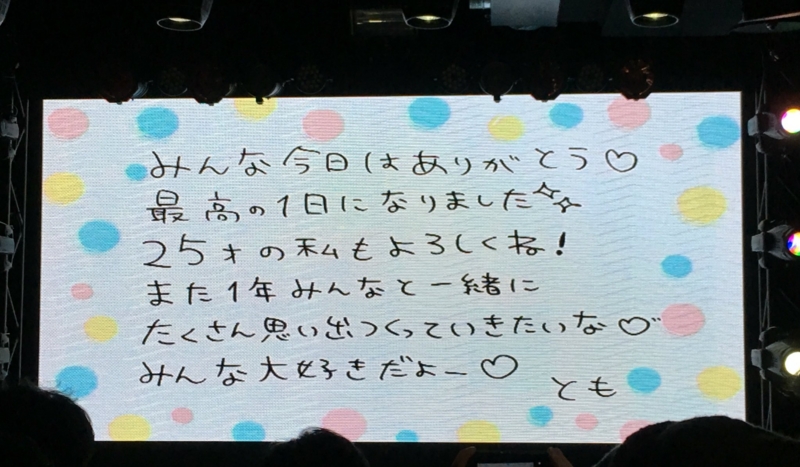 みんな今日はありがとう♡
最高の1日になりました✨
25才の私もよろしくね!
また1年みんなと一緒に
たくさん思い出つくっていきたいな♡
みんな大好きだよー♡
とも